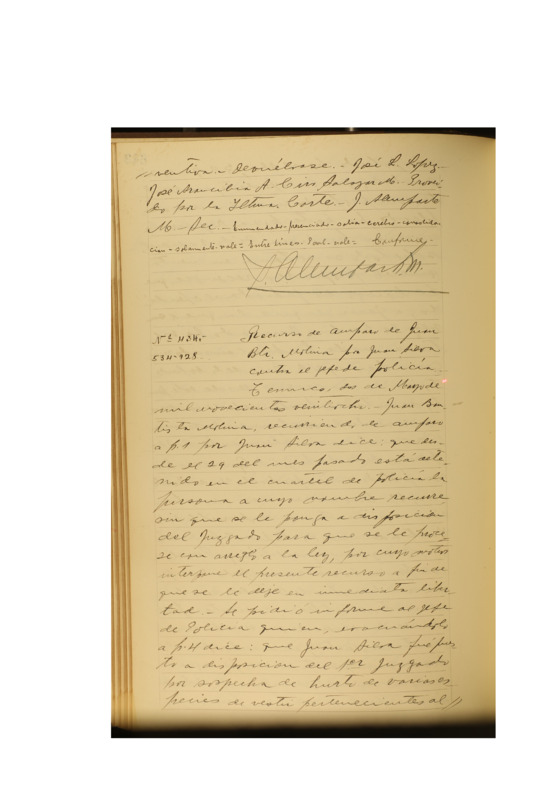 ventiva - Devuélvase. - José R. López
José Arancibia A. Ciro Salazar M. Proveí-
do por la Iltma. Corte - J. Alemparte
M. - Sec. - Enmendado =
cion - solamente - vale = Entre líneas. vale = Conforme.
J. Alemparte M.
Nº
534-928
Recurso de amparo de Juan
Bta. Molina por Juan Silva
contra el jefe de policía.
Temuco, dos de Mayo de
mil novecientos veintiocho. - Juan Bau-
tista Molina, recurriendo de amparo
a f. 1 por Juan Silva dice: que des-
de el 29 del mes pasado está dete-
nido en el cuartel de policía la
persona a cuyo nombre recurre
sin que se le ponga a disposición
del Juzgado para que se le proce-
se con arreglo a la ley, por cuyo motivo
interpone el presente recurso a fin de
que se le deje en inmediata liber-
tad. - Se pidió informe al jefe
de Policía quien, evacuándolo
a f. 4 dice: que Juan Silva fué pues-
to a disposición del 1er Juzgado
por sospecha de hurto de varias es-
pecies de vestir pertenecientes al //